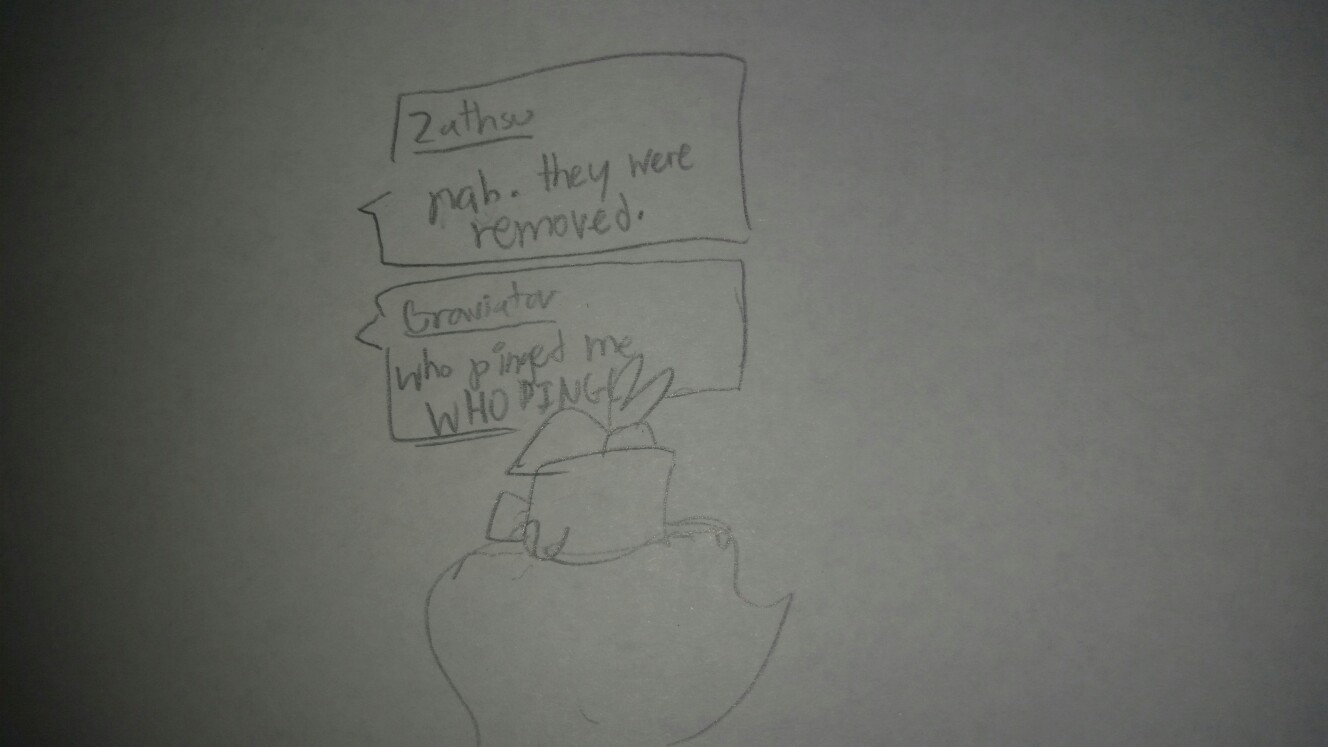 Zathsu
nah. they were
removed.
Graviator
who pinged me
WHO PING